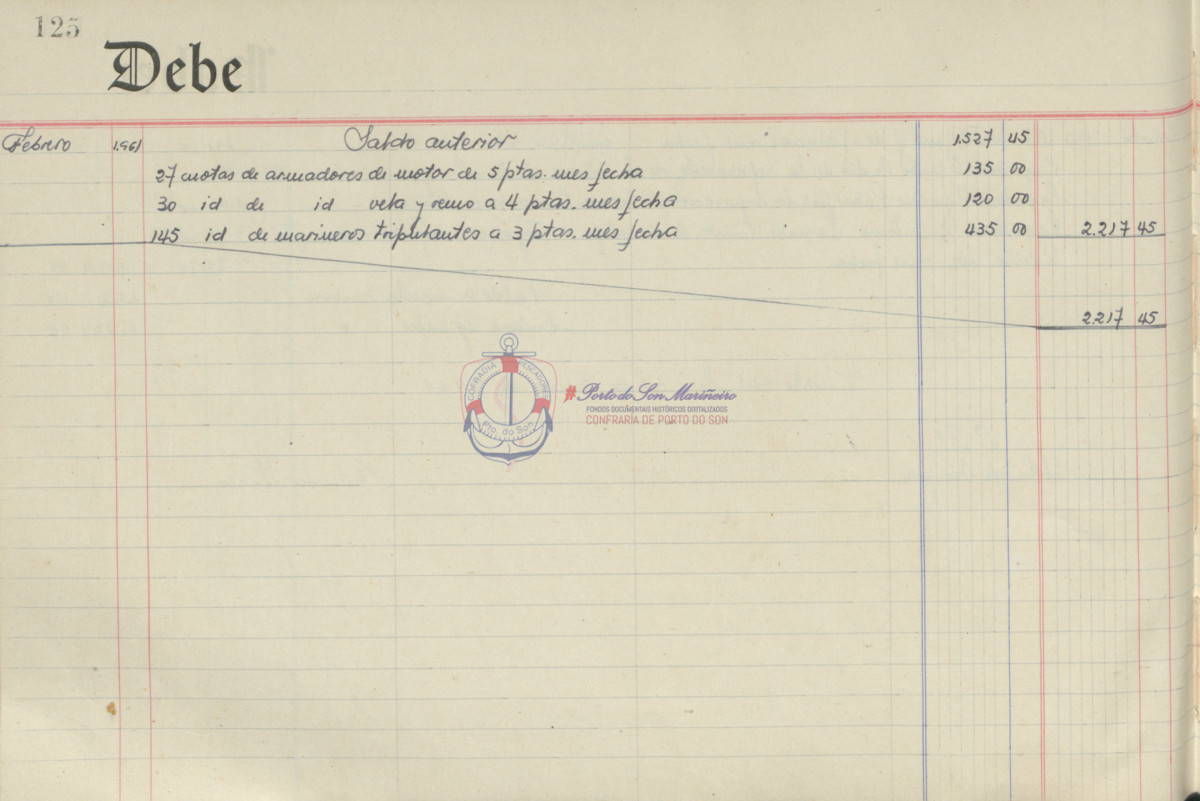 125
Debe
Febrero 1.961 Saldo anterior 1.527 45
27 cuotas de armadores de motor de 5 ptas. mes fecha 135 00
30 id de id vela y remo a 4 ptas. mes fecha 120 00
145 id de marineros tripulantes a 3 ptas. mes fecha 435 00 2.217 45
2.217 45
COFRADIA PESCADORES
Pto. do Son
#Porto do Son Mariñeiro
FONDOS DOCUMENTAIS HISTÓRICOS DIXITALIZADOS
CONFRARÍA DE PORTO DO SON